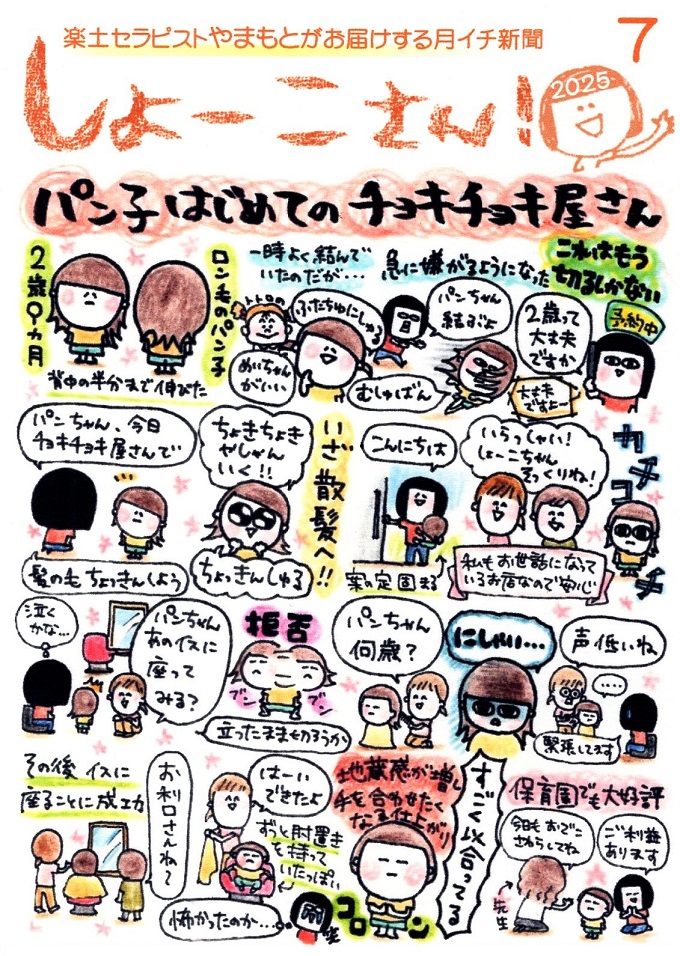 楽土セラピストやまもとがお届けする月イチ新聞
7
しょーこさん!
2025
パン子はじめてのチョキチョキ屋さん
2歳9ヵ月
ロン毛のパン子
背中の半分まで伸びた
一時よく結んで
いたのだが…
トトロの
ふたちゅにしゅる
めいちゃん
がいい
急に嫌がるようになった
パンちゃん
結ぶよ
むしゅばん
これはもう
切るしかない
予約中
2歳って
大丈夫
ですか
大丈夫
ですよー
パンちゃん、今日
チョキチョキ屋さんで
髪の毛ちょっきんしよう
ちょきちょき
やしゃん
いく!!
ちょっきんしゅる
いざ散髪へ!!
こんにちは
案の定固まる
いらっしゃい!
しょーこちゃん
そっくりね!
私もお世話になって
いるお店なので安心
カチコチ
泣く
かな…
パンちゃん
あのイスに
座って
みる?
拒否
ブン
ブン
立ったまま切ろうか
パンちゃん
何歳?
にしゃい…
声低いね
…
緊張してます
その後イスに
座ることに成功
お利口さんね〜
はーい
できたよ
ずっと肘置き
を持って
いたっぽい
怖かったのか…
地蔵感が増し
手を合わせたく
なる仕上がり
コローン
すごく似合ってる
保育園でも大好評
今日もおでこ
さわらしてね
先生
ご利益
あります